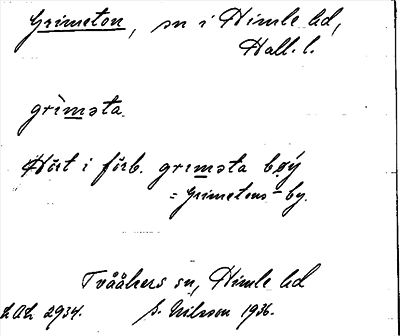 Grimeton, sn i Himle hd,
Hall. l.
grìməta.
Hört i förb. grıməta bøý
= Grimetons-by.
Tvååkers sn, Himle hd
L.A.L. 2934. S. Nilsson 1936.